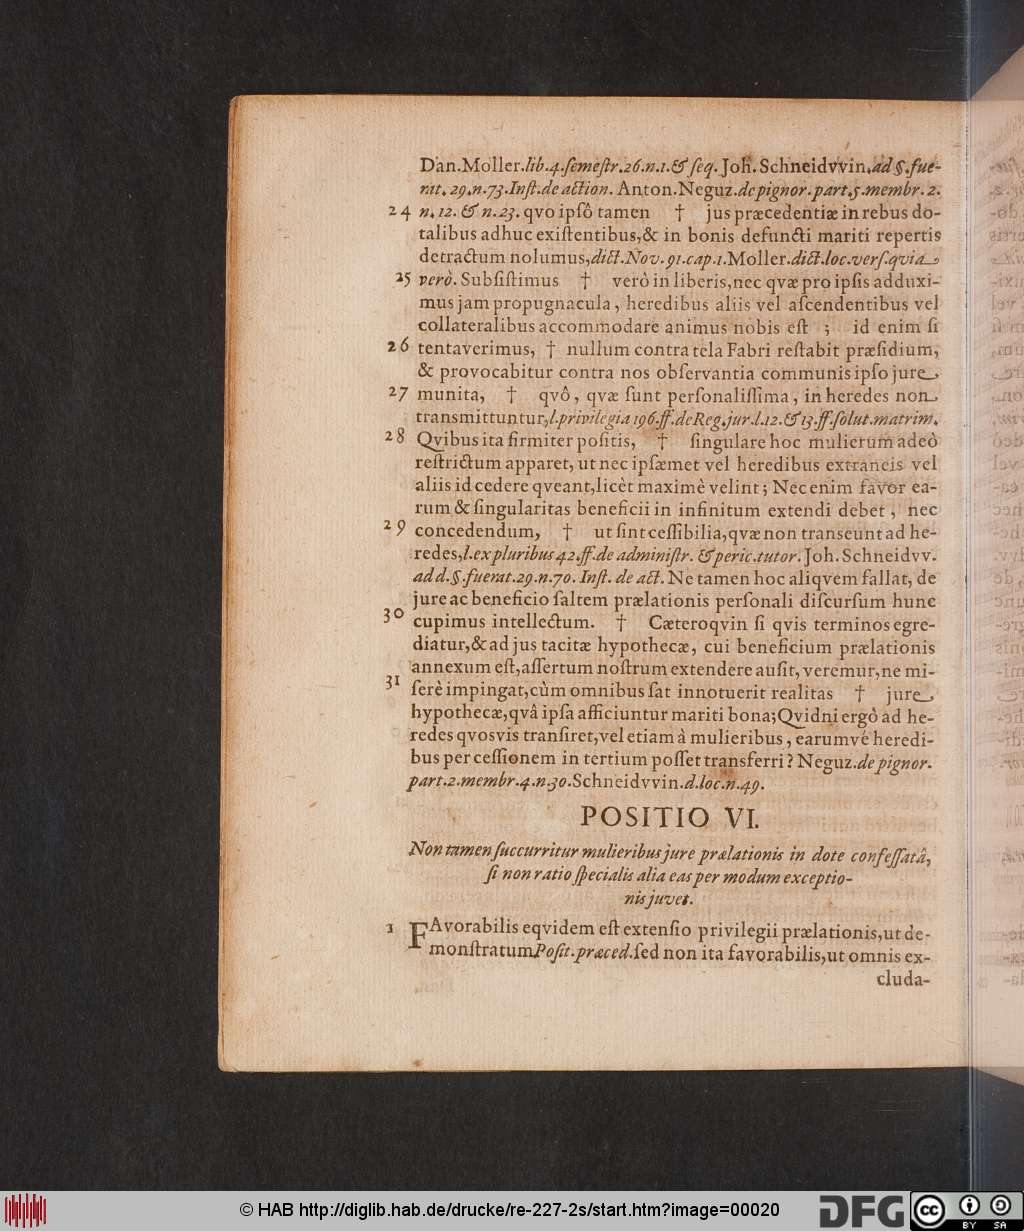 Dan.Moller.lib.4.ſemeſtr.26.n.1.& ſeq. Joh.Schneidvvin.ad §.fue-
rit. 29.n.73.Inſt.de action. Anton.Neguz.de pignor.part.5.membr.2.
24 n.12. & n.23. qvo ipſô tamen † jus præcedentiæ in rebus do-
talibus adhuc exiſtentibus,& in bonis defuncti mariti repertis
detractum nolumus,dict.Nov.91.cap.1.Moller.dict.loc.verſ.qvia
25 verò. Subſiſtimus † verò in liberis,nec qvæ pro ipſis adduxi-
mus jam propugnacula, heredibus aliis vel aſcendentibus vel
collateralibus accommodare animus nobis eſt ; id enim ſi
26 tentaverimus, † nullum contra tela Fabri reſtabit præſidium,
& provocabitur contra nos obſervantia communis ipſo jure
27 munita, † qvô, qvæ ſunt perſonaliſſima, in heredes non
transmittuntur,l.privilegia 196.ff.de Reg.jur.l.12.&13.ff.ſolut.matrim.
28 Qvibus ita firmiter poſitis, † ſingulare hoc mulierum adeò
reſtrictum apparet, ut nec ipſæmet vel heredibus extraneis vel
aliis id cedere qveant,licèt maximè velint; Nec enim favor ea-
rum & ſingularitas beneficii in infinitum extendi debet, nec
29 concedendum, † ut ſint ceſſibilia,qvæ non transeunt ad he-
redes,l.ex pluribus 42.ff.de adminiſtr. & peric.tutor. Joh.Schneidvv.
ad d.§.fuerat.29.n.70. Inſt. de act. Ne tamen hoc aliqvem fallat, de
jure ac beneficio ſaltem prælationis perſonali diſcurſum hunc
30 cupimus intellectum. † Cæteroqvin ſi qvis terminos egre-
diatur,& ad jus tacitæ hypothecæ, cui beneficium prælationis
annexum eſt,aſſertum noſtrum extendere auſit, veremur,ne mi-
31 ſerè impingat,cùm omnibus ſat innotuerit realitas † jure
hypothecæ,qvâ ipſa afficiuntur mariti bona;Qvidni ergò ad he-
redes qvosvis tranſiret,vel etiam à mulieribus, earumvé heredi-
bus per ceſſionem in tertium poſſet transferri? Neguz.de pignor.
part.2.membr.4.n.30.Schneidvvin.d.loc.n.49.
POSITIO VI.
Non tamen ſuccurritur mulieribus jure prælationis in dote confeſſatâ,
ſi non ratio ſpecialis alia eas per modum exceptio-
nis juvet.
1 FAvorabilis eqvidem eſt extenſio privilegii prælationis,ut de-
monſtratum Poſit.præced.ſed non ita favorabilis,ut omnis ex-
cluda-
© HAB http://diglib.hab.de/drucke/re-227-2s/start.htm?image=00020
DFG
cc BY SA